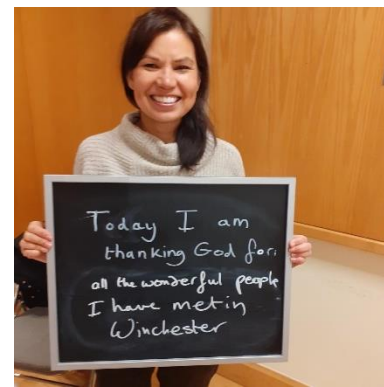 Today I am
thanking God for:
all the wonderful people
I have met in
Winchester